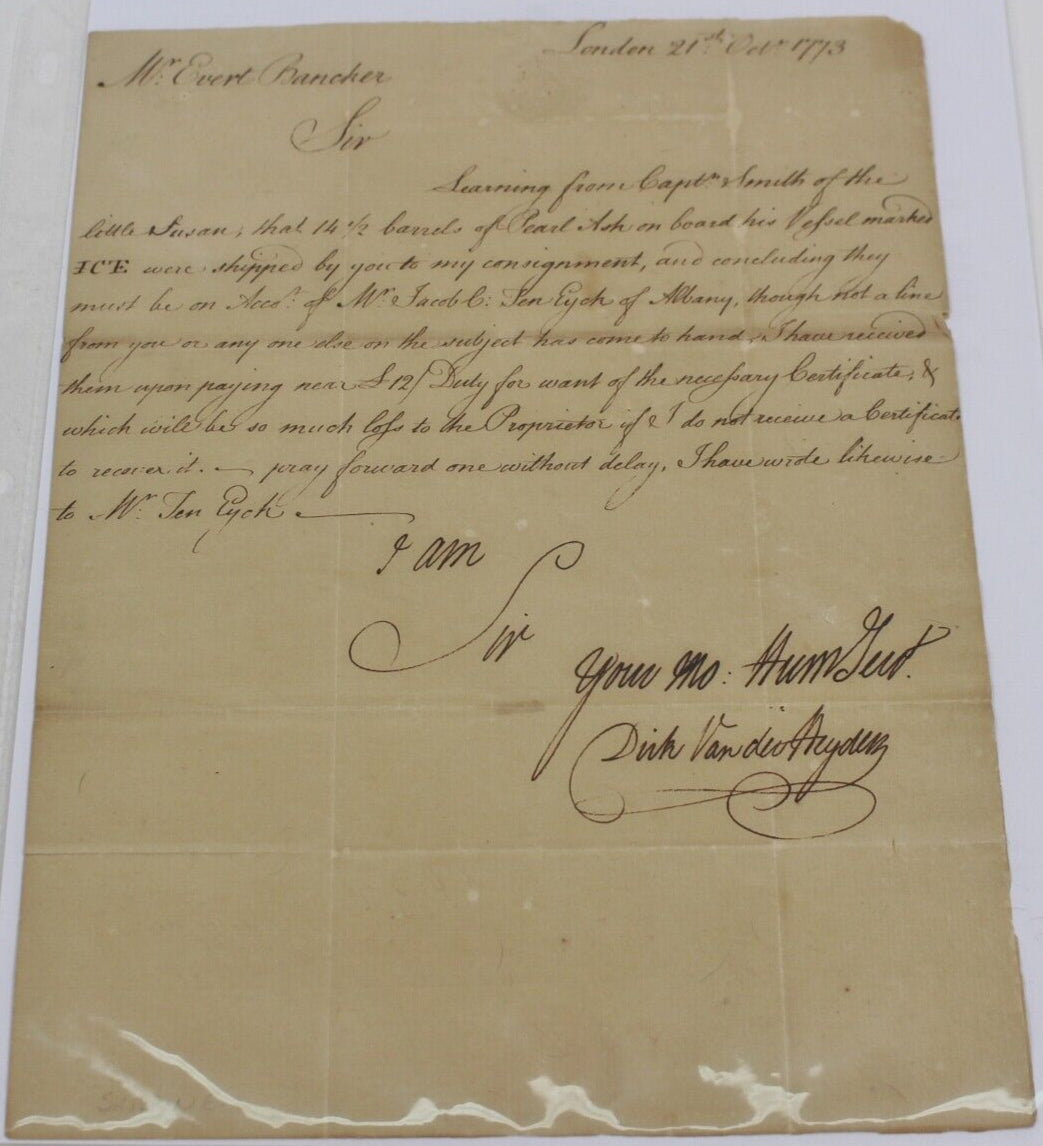 London 21st. Octr. 1773
Mr. Evert Bancker
Sir
Learning from Captn. Smith of the
little Susan, that 14 1/2 barrels of Pearl Ash on board his Vessel marked
ICE were shipped by you to my consignment, and concluding they
must be on Acco.t of Mr. Jacob C: Ten Eyck of Albany, though not a line
from you or any one else on the subject has come to hand, I have received
them upon paying near £12/ Duty for want of the necessary Certificate, &
which will be so much loss to the Proprietor if I do not receive a Certificate
to recover it. — pray forward one without delay, I have wrote likewise
to Mr. Ten Eyck. —
I am
Sir
Your Mo: Hum Servt.
Dirk Van der Heyden